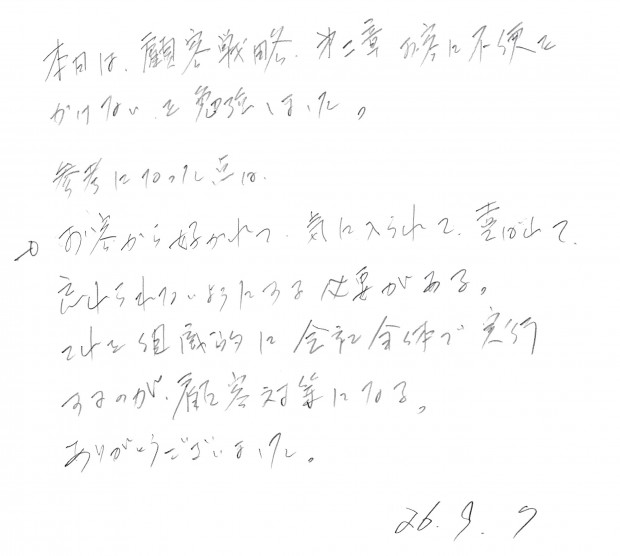 本日は、顧客戦略、第二章 お客に不便を
かけない を勉強しました。
参考になった点は、
お客から好かれて、気に入られて、喜ばれて、
忘れられないようにする必要がある。
これを組織的に会社全体で実行
するのが、顧客対策になる。
ありがとうございました。
26.9.9